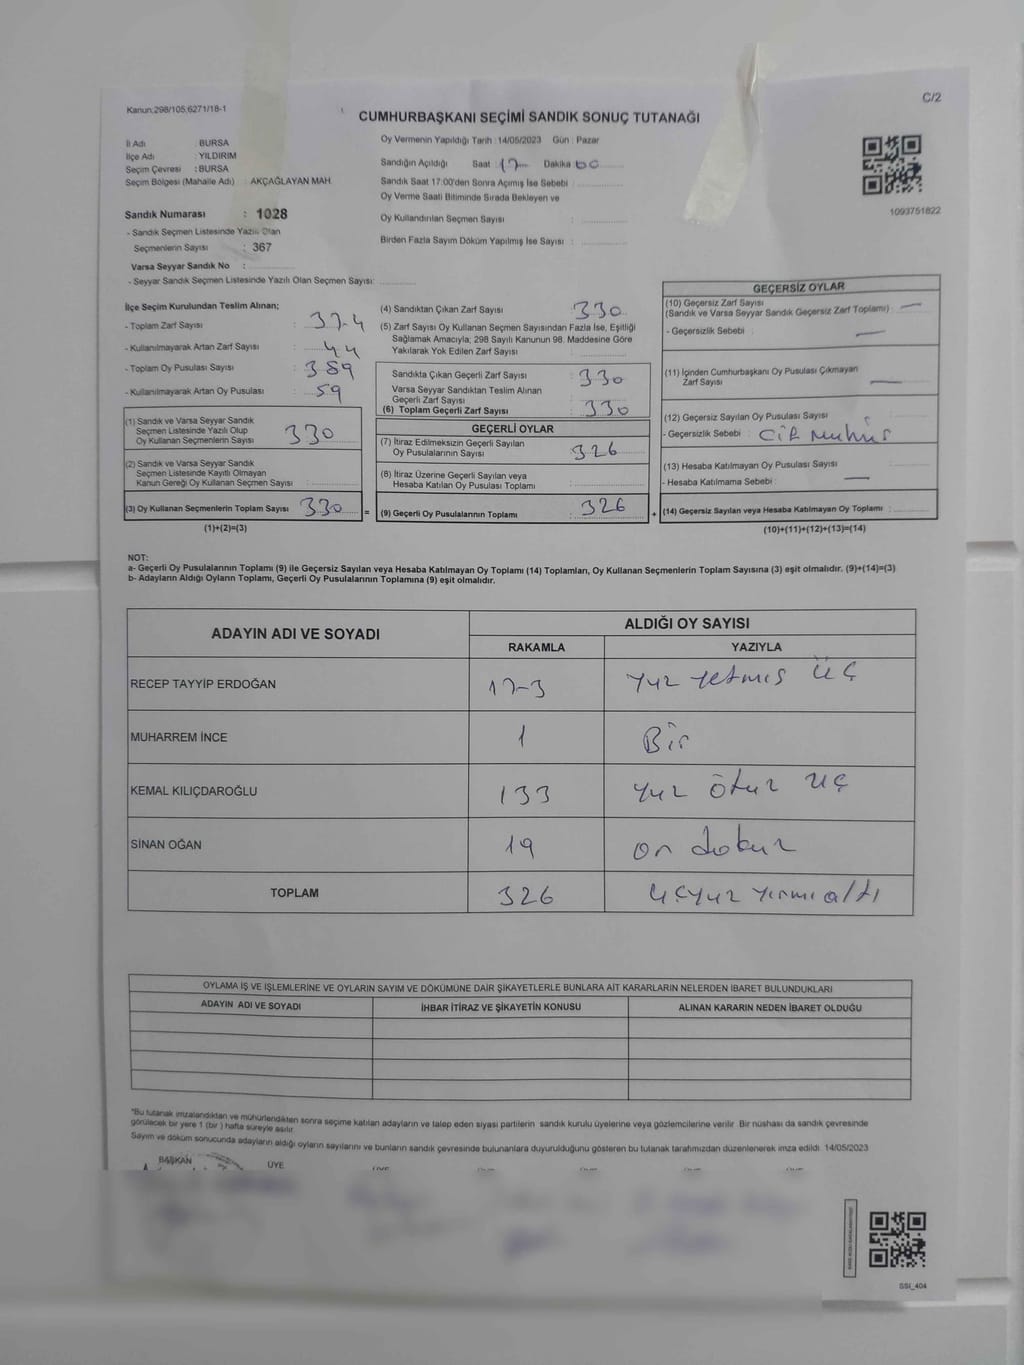 Kanun:298/105;6271/18-1
C/2
CUMHURBAŞKANI SEÇİMİ SANDIK SONUÇ TUTANAĞI
İl Adı BURSA
İlçe Adı : YILDIRIM
Seçim Çevresi : BURSA
Seçim Bölgesi (Mahalle Adı) : AKÇAĞLAYAN MAH.
Sandık Numarası : 1028
- Sandık Seçmen Listesinde Yazılı Olan
Seçmenlerin Sayısı : 367
Varsa Seyyar Sandık No :
- Seyyar Sandık Seçmen Listesinde Yazılı Olan Seçmen Sayısı:
Oy Vermenin Yapıldığı Tarih :14/05/2023 Gün : Pazar
Sandığın Açıldığı Saat : 17 Dakika 00
Sandık Saat 17:00'den Sonra Açılmış İse Sebebi :
Oy Verme Saati Bitiminde Sırada Bekleyen ve
Oy Kullandırılan Seçmen Sayısı :
Birden Fazla Sayım Döküm Yapılmış İse Sayısı :
1093751822
İlçe Seçim Kurulundan Teslim Alınan;
- Toplam Zarf Sayısı : 374
- Kullanılmayarak Artan Zarf Sayısı : 44
- Toplam Oy Pusulası Sayısı : 389
- Kullanılmayarak Artan Oy Pusulası : 59
(1) Sandık ve Varsa Seyyar Sandık
Seçmen Listesinde Yazılı Olup
Oy Kullanan Seçmenlerin Sayısı : 330
(2) Sandık ve Varsa Seyyar Sandık
Seçmen Listesinde Kayıtlı Olmayan
Kanun Gereği Oy Kullanan Seçmen Sayısı :
(3) Oy Kullanan Seçmenlerin Toplam Sayısı : 330 =
(1)+(2)=(3)
(4) Sandıktan Çıkan Zarf Sayısı : 330
(5) Zarf Sayısı Oy Kullanan Seçmen Sayısından Fazla İse, Eşitliği
Sağlamak Amacıyla; 298 Sayılı Kanunun 98. Maddesine Göre
Yakılarak Yok Edilen Zarf Sayısı :
Sandıkta Çıkan Geçerli Zarf Sayısı : 330
Varsa Seyyar Sandıktan Teslim Alınan
Geçerli Zarf Sayısı
(6) Toplam Geçerli Zarf Sayısı : 330
GEÇERLİ OYLAR
(7) İtiraz Edilmeksizin Geçerli Sayılan
Oy Pusulalarının Sayısı : 326
(8) İtiraz Üzerine Geçerli Sayılan veya
Hesaba Katılan Oy Pusulası Toplamı :
(9) Geçerli Oy Pusulalarının Toplamı : 326 +
GEÇERSİZ OYLAR
(10) Geçersiz Zarf Sayısı
(Sandık ve Varsa Seyyar Sandık Geçersiz Zarf Toplamı) : —
- Geçersizlik Sebebi : —
(11) İçinden Cumhurbaşkanı Oy Pusulası Çıkmayan
Zarf Sayısı : —
(12) Geçersiz Sayılan Oy Pusulası Sayısı :
- Geçersizlik Sebebi : Çift Mühür
(13) Hesaba Katılmayan Oy Pusulası Sayısı :
- Hesaba Katılmama Sebebi : —
(14) Geçersiz Sayılan veya Hesaba Katılmayan Oy Toplamı :
(10)+(11)+(12)+(13)=(14)
NOT:
a- Geçerli Oy Pusulalarının Toplamı (9) ile Geçersiz Sayılan veya Hesaba Katılmayan Oy Toplamı (14) Toplamları, Oy Kullanan Seçmenlerin Toplam Sayısına (3) eşit olmalıdır. (9)+(14)=(3)
b- Adayların Aldığı Oyların Toplamı, Geçerli Oy Pusulalarının Toplamına (9) eşit olmalıdır.
ADAYIN ADI VE SOYADI
ALDIĞI OY SAYISI
RAKAMLA YAZIYLA
RECEP TAYYİP ERDOĞAN 173 Yüz yetmiş üç
MUHARREM İNCE 1 Bir
KEMAL KILIÇDAROĞLU 133 Yüz otuz üç
SİNAN OĞAN 19 on dokuz
TOPLAM 326 üçyüz yirmi altı
OYLAMA İŞ VE İŞLEMLERİNE VE OYLARIN SAYIM VE DÖKÜMÜNE DAİR ŞİKAYETLERLE BUNLARA AİT KARARLARIN NELERDEN İBARET BULUNDUKLARI
ADAYIN ADI VE SOYADI İHBAR İTİRAZ VE ŞİKAYETİN KONUSU ALINAN KARARIN NEDEN İBARET OLDUĞU
*Bu tutanak imzalandıktan ve mühürlendikten sonra seçime katılan adayların ve talep eden siyasi partilerin sandık kurulu üyelerine veya gözlemcilerine verilir. Bir nüshası da sandık çevresinde
görülecek bir yere 1 (bir ) hafta süreyle asılır.
Sayım ve döküm sonucunda adayların aldığı oyların sayılarını ve bunların sandık çevresinde bulunanlara duyurulduğunu gösteren bu tutanak tarafımızdan düzenlenerek imza edildi. 14/05/2023
BAŞKAN ÜYE
SSI_404